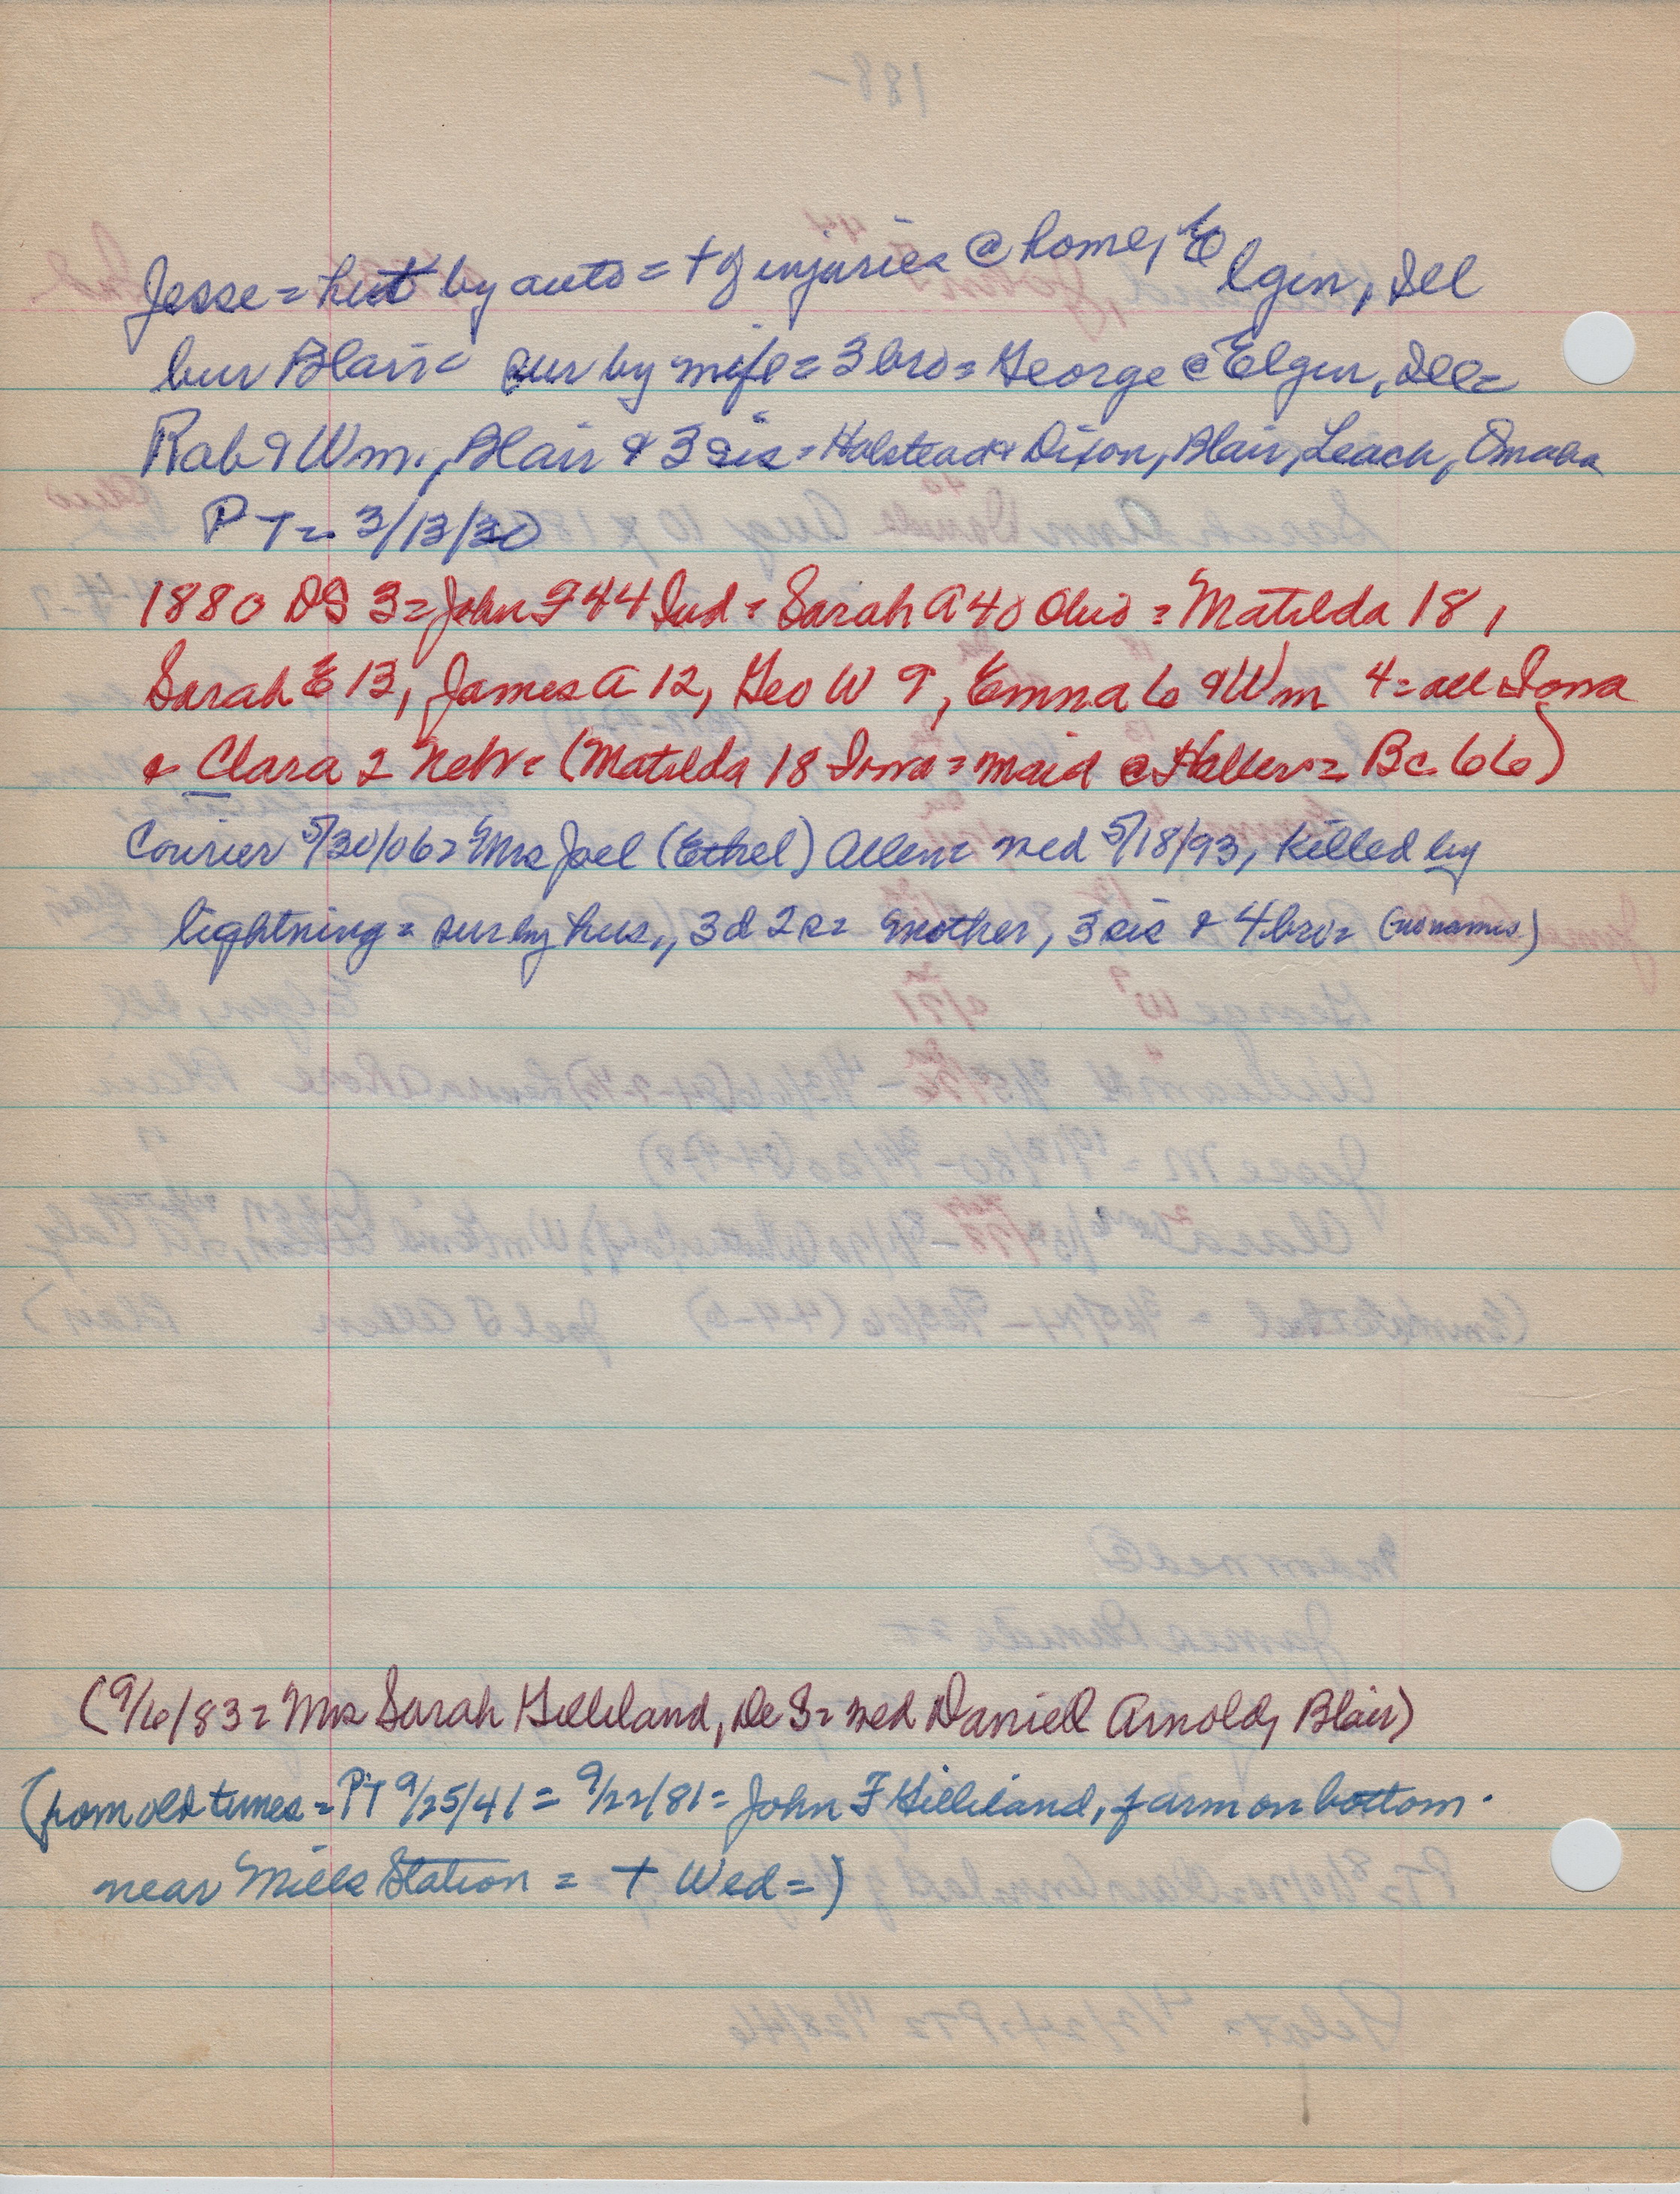 Jesse = hit by auto = + of injuries @ home, Elgin, Ill
bur Blair = sur by wife = 3 bro = George @ Elgin, Ill =
Rob & Wm., Blair & 3 sis = Halstead & Dixon, Blair, Leach, Omaha
PT = 3/13/30
1880 DS 3 = John F 44 Ind = Sarah A 40 Ohio = Matilda 18,
Sarah E 13, James A 12, Geo W 9, Emma 6 & Wm 4 = all Iowa
& Clara 2 Nebr = (Matilda 18 Iowa = maid @ Haller = Bc 66)
Courier 5/30/06 = Mrs Joel (Ethel) Allen = med 5/18/93, killed by
lightning = sur by hus,, 3 d 2 s = mother, 3 sis & 4 bro = (no names)
(9/6/83 = Mrs Sarah Gilliland, De S = med Daniell Arnold, Blair)
(from old times = PT 9/25/41 = 9/22/81 = John F Gilliland, farm on bottom
near Mills Station = + Wed =)